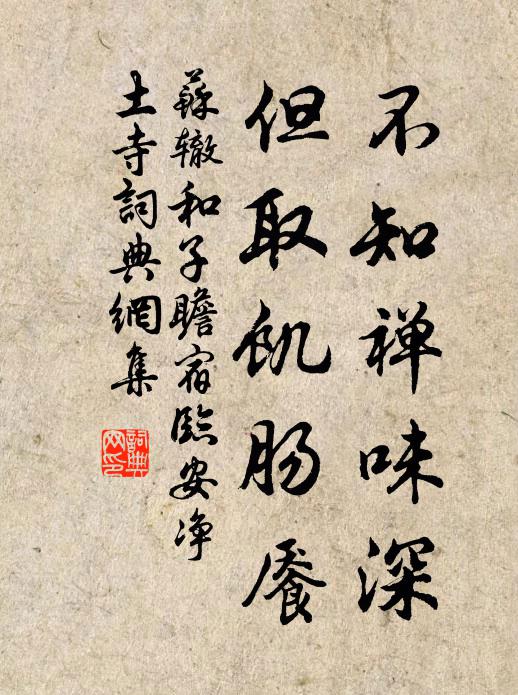 不知禅味深
但取飢肠餍
蘇辙和子瞻宿臨安净
土寺詞典網集
詞典网印